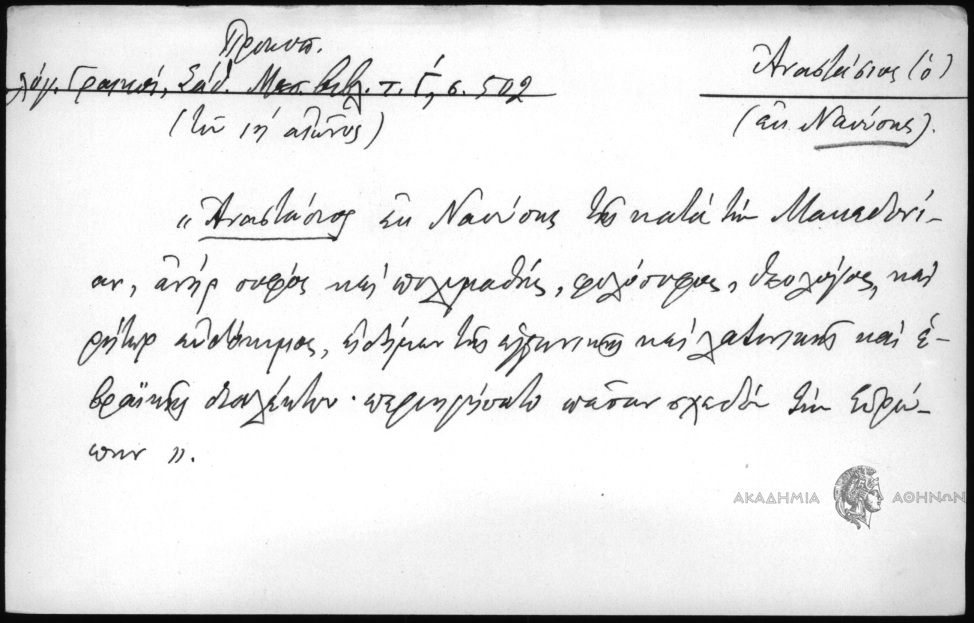 Προκοπ.
λόγ. Γραικοί, Σάθ. Μεσ. Βιβλ. τ. Γ', σ. 502
(τοῦ ιη' αἰῶνος)
Ἀναστάσιος (ὁ)
(ἐκ Ναούσης).
«Ἀναστάσιος ἐκ Ναούσης τῆς κατὰ τὴν Μακεδονί-
αν, ἀνὴρ σοφὸς καὶ πολυμαθής, φιλόσοφος, θεολόγος, καὶ
ρήτωρ εὐδόκιμος, εἰδήμων τῆς ἑλληνικῆς καὶ λατινικῆς καὶ ἑ-
βραϊκῆς διαλέκτου· περιηγήσατο πᾶσαν σχεδὸν τὴν Εὐρώ-
πην».
ΑΚΑΔΗΜΙΑ ΑΘΗΝΩΝ